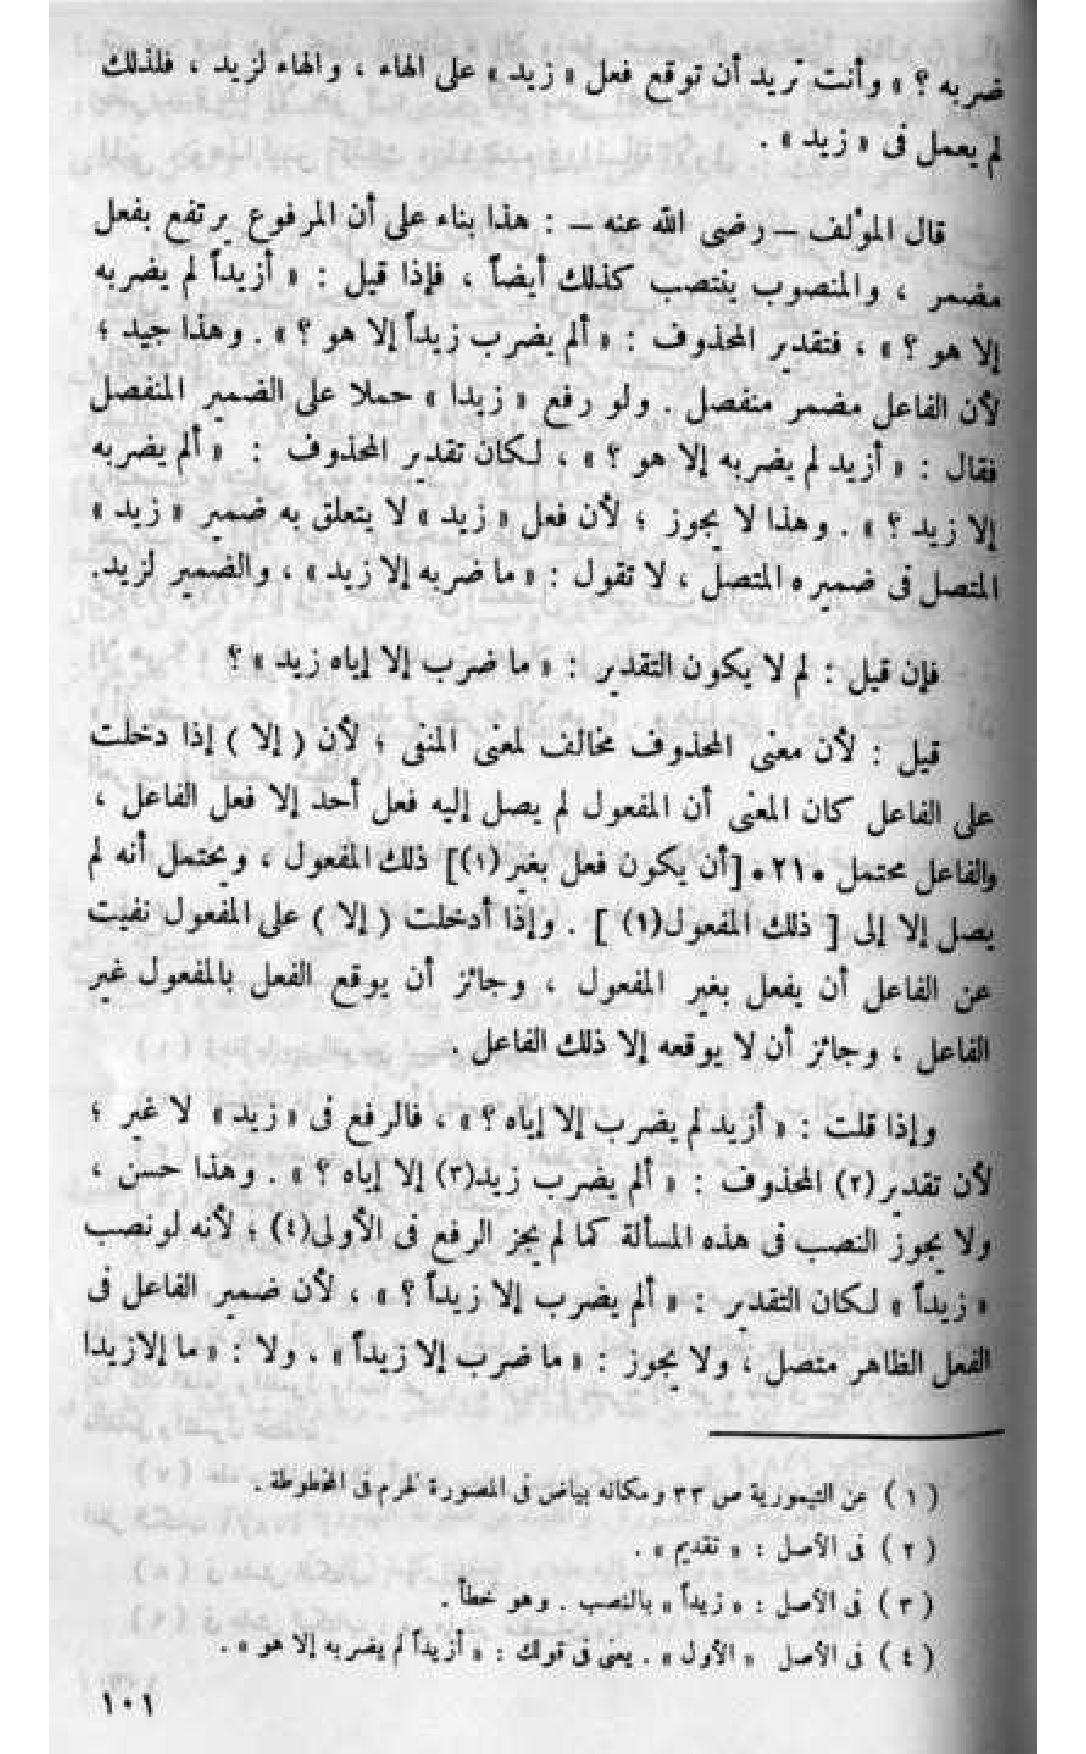 ضربه ؟ » وأنت تريد أن توقع فعل « زيد » على الهاء ، والهاء لزيد ، فلذلك
لم يعمل فى « زيد » .
قال المؤلف – رضى الله عنه – : هذا بناء على أن المرفوع يرتفع بفعل
مضمر ، والمنصوب ينتصب كذلك أيضاً ، فإذا قيل : « أزيداً لم يضربه
إلا هو ؟ » ، فتقدير المحذوف : « ألم يضرب زيداً إلا هو ؟ » . وهذا جيد ؛
لأن الفاعل مضمر منفصل . ولو رفع « زيدا » حملا على الضمير المنفصل
فقال : « أزيد لم يضربه إلا هو ؟ » ، لكان تقدير المحذوف : « ألم يضربه
إلا زيد ؟ » . وهذا لا يجوز ؛ لأن فعل « زيد » لا يتعلق به ضمير « زيد »
المتصل فى ضميره المتصل ، لا تقول : « ما ضربه إلا زيد » ، والضمير لزيد.
فإن قيل : لم لا يكون التقدير : « ما ضرب إلا إياه زيد » ؟
قيل : لأن معنى المحذوف مخالف لمعنى المنفى ؛ لأن ( إلا ) إذا دخلت
على الفاعل كان المعنى أن المفعول لم يصل إليه فعل أحد إلا فعل الفاعل ،
والفاعل محتمل •٢١• [أن يكون فعل بغير(١)] ذلك المفعول ، ويحتمل أنه لم
يصل إلا إلى [ ذلك المفعول(١) ] . وإذا أدخلت ( إلا ) على المفعول نفيت
عن الفاعل أن يفعل بغير المفعول ، وجائز أن يوقع الفعل بالمفعول غير
الفاعل ، وجائز أن لا يوقعه إلا ذلك الفاعل .
وإذا قلت : « أزيد لم يضرب إلا إياه ؟ » ، فالرفع فى « زيد » لا غير ؛
لأن تقدير(٢) المحذوف : « ألم يضرب زيد(٣) إلا إياه ؟ » . وهذا حسن ،
ولا يجوز النصب فى هذه المسألة كما لم يجز الرفع فى الأولى(٤) ؛ لأنه لو نصب
« زيداً » لكان التقدير : « ألم يضرب إلا زيداً ؟ » ، لأن ضمير الفاعل فى
الفعل الظاهر متصل ، ولا يجوز : « ما ضرب إلا زيداً » ، ولا : « ما إلا زيدا
( ١ ) عن التيمورية ص ٣٣ ومكانه بياض فى المصورة لخرم فى المخطوطة .
( ٢ ) فى الأصل : « تقديم » .
( ٣ ) فى الأصل : « زيداً » بالنصب . وهو خطأ .
( ٤ ) فى الأصل « الأول » . يعنى فى قولك : « أزيداً لم يضربه إلا هو » .
١٠١